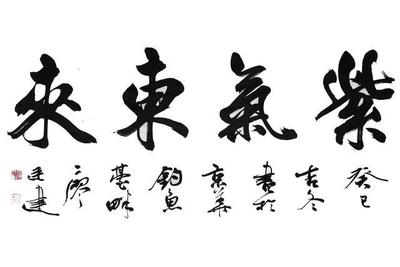 紫氣東來
癸巳
吉冬
書於
京華
釣魚
臺畔
廖